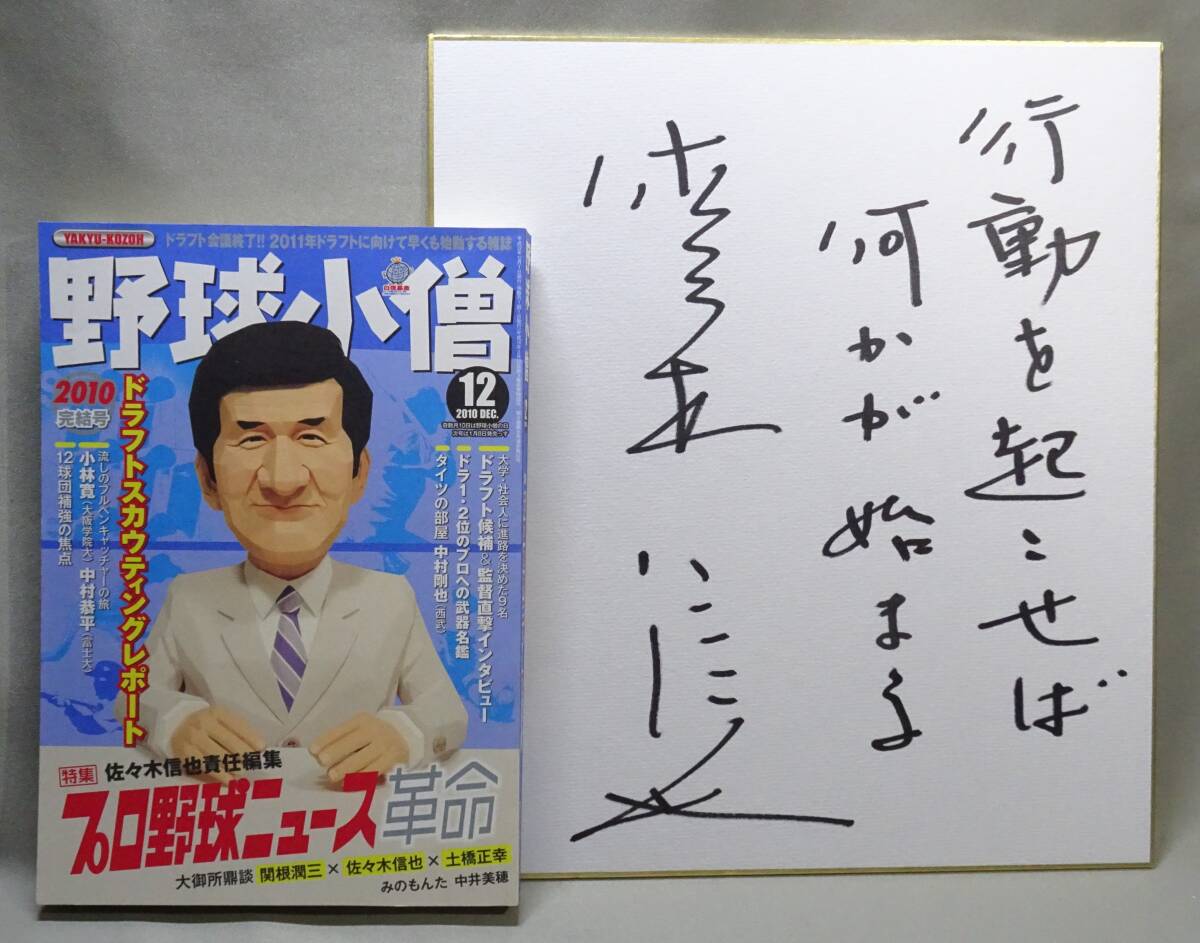 YAKYU-KOZOH
ドラフト会議終了!! 2011年ドラフトに向けて早くも始動する雑誌
野球小僧
白夜書房
12
2010 DEC.
奇数月10日は野球小僧の日
次号は1月8日発売っす
2010
完結号
ドラフトスカウティングレポート
流しのブルペンキャッチャーの旅
小林寛(大阪学院大) 中村恭平(富士大)
12球団補強の焦点
大学・社会人に進路を決めた9名
ドラフト候補&監督直撃インタビュー
ドラ1・2位のプロへの武器名鑑
タイツの部屋 中村剛也(西武)
特集 佐々木信也責任編集
プロ野球ニュース革命
大御所鼎談 関根潤三×佐々木信也×土橋正幸
みのもんた 中井美穂
行動を起こせば
何かが始まる
佐々木信也